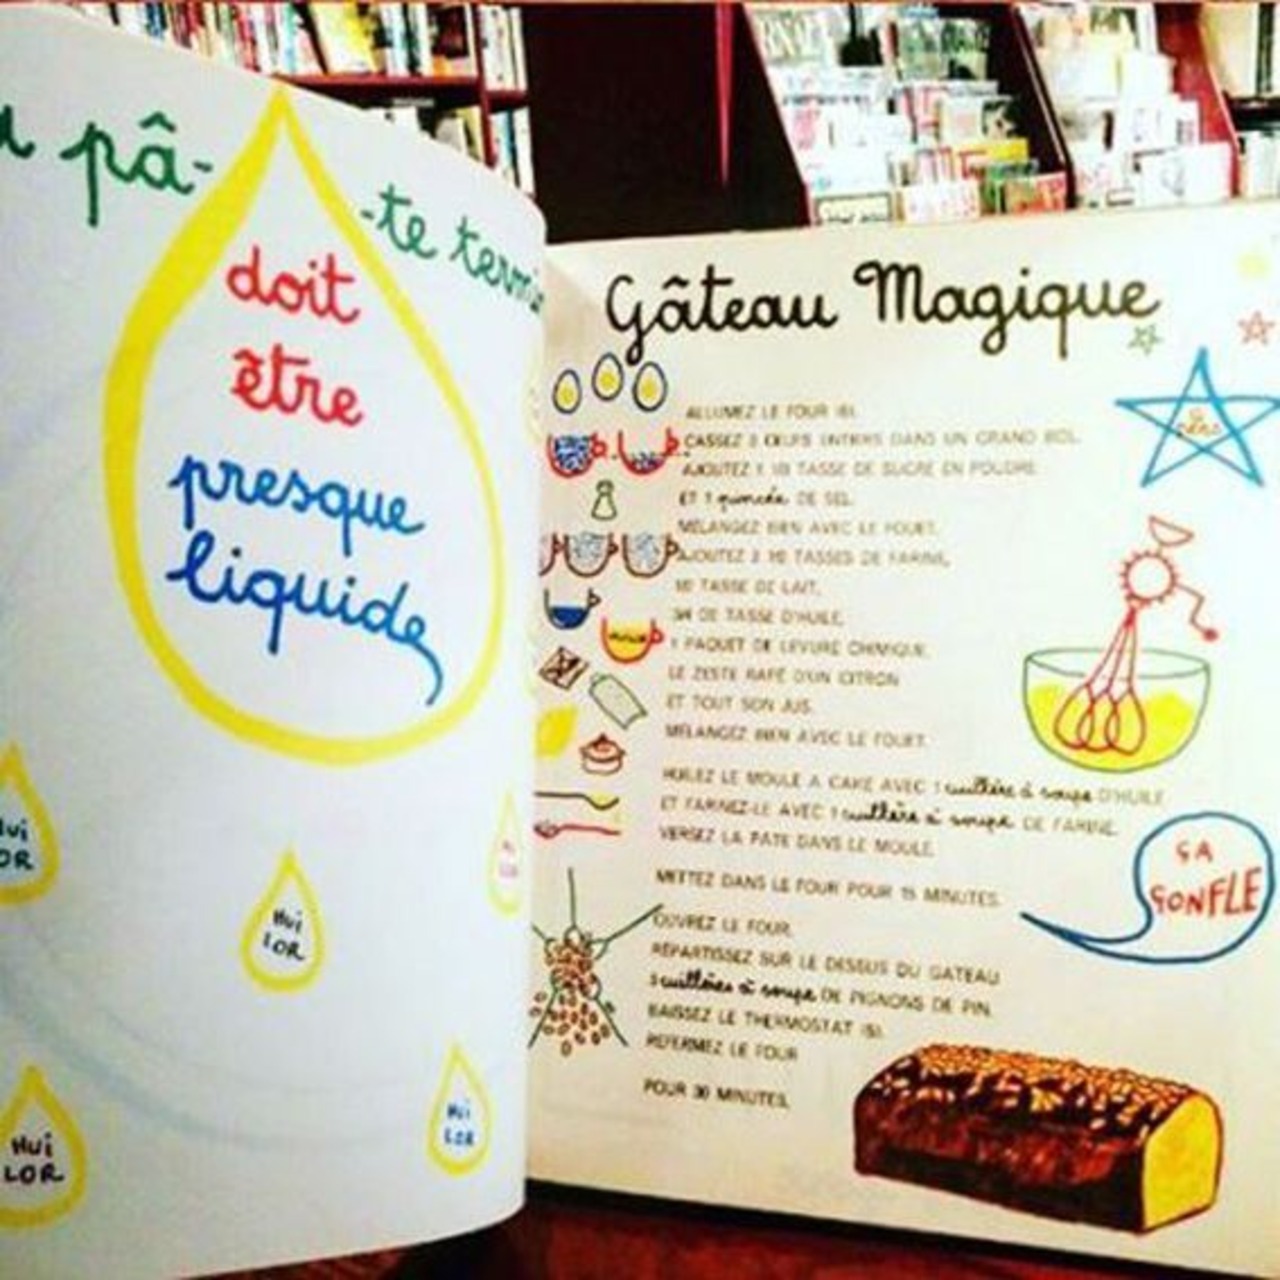 pâ-
-te
doit
être
presque
liquide
HUI
LOR
HUI
LOR
HUI
LOR
HUI
LOR
Gâteau Magique
ALLUMEZ LE FOUR (6).
CASSEZ 3 ŒUFS ENTIERS DANS UN GRAND BOL.
AJOUTEZ 1 1/2 TASSE DE SUCRE EN POUDRE
ET 1 pincée DE SEL.
MÉLANGEZ BIEN AVEC LE FOUET.
AJOUTEZ 2 1/2 TASSES DE FARINE,
1/2 TASSE DE LAIT,
3/4 DE TASSE D'HUILE,
1 PAQUET DE LEVURE CHIMIQUE,
LE ZESTE RAPÉ D'UN CITRON
ET TOUT SON JUS.
MÉLANGEZ BIEN AVEC LE FOUET.
HUILEZ LE MOULE A CAKE AVEC 1 cuillère à soupe D'HUILE
ET FARINEZ-LE AVEC 1 cuillère à soupe DE FARINE.
VERSEZ LA PATE DANS LE MOULE.
METTEZ DANS LE FOUR POUR 15 MINUTES.
OUVREZ LE FOUR.
RÉPARTISSEZ SUR LE DESSUS DU GATEAU
3 cuillères à soupe DE PIGNONS DE PIN.
BAISSEZ LE THERMOSTAT (5).
REFERMEZ LE FOUR
POUR 30 MINUTES.
ÇA
GONFLE